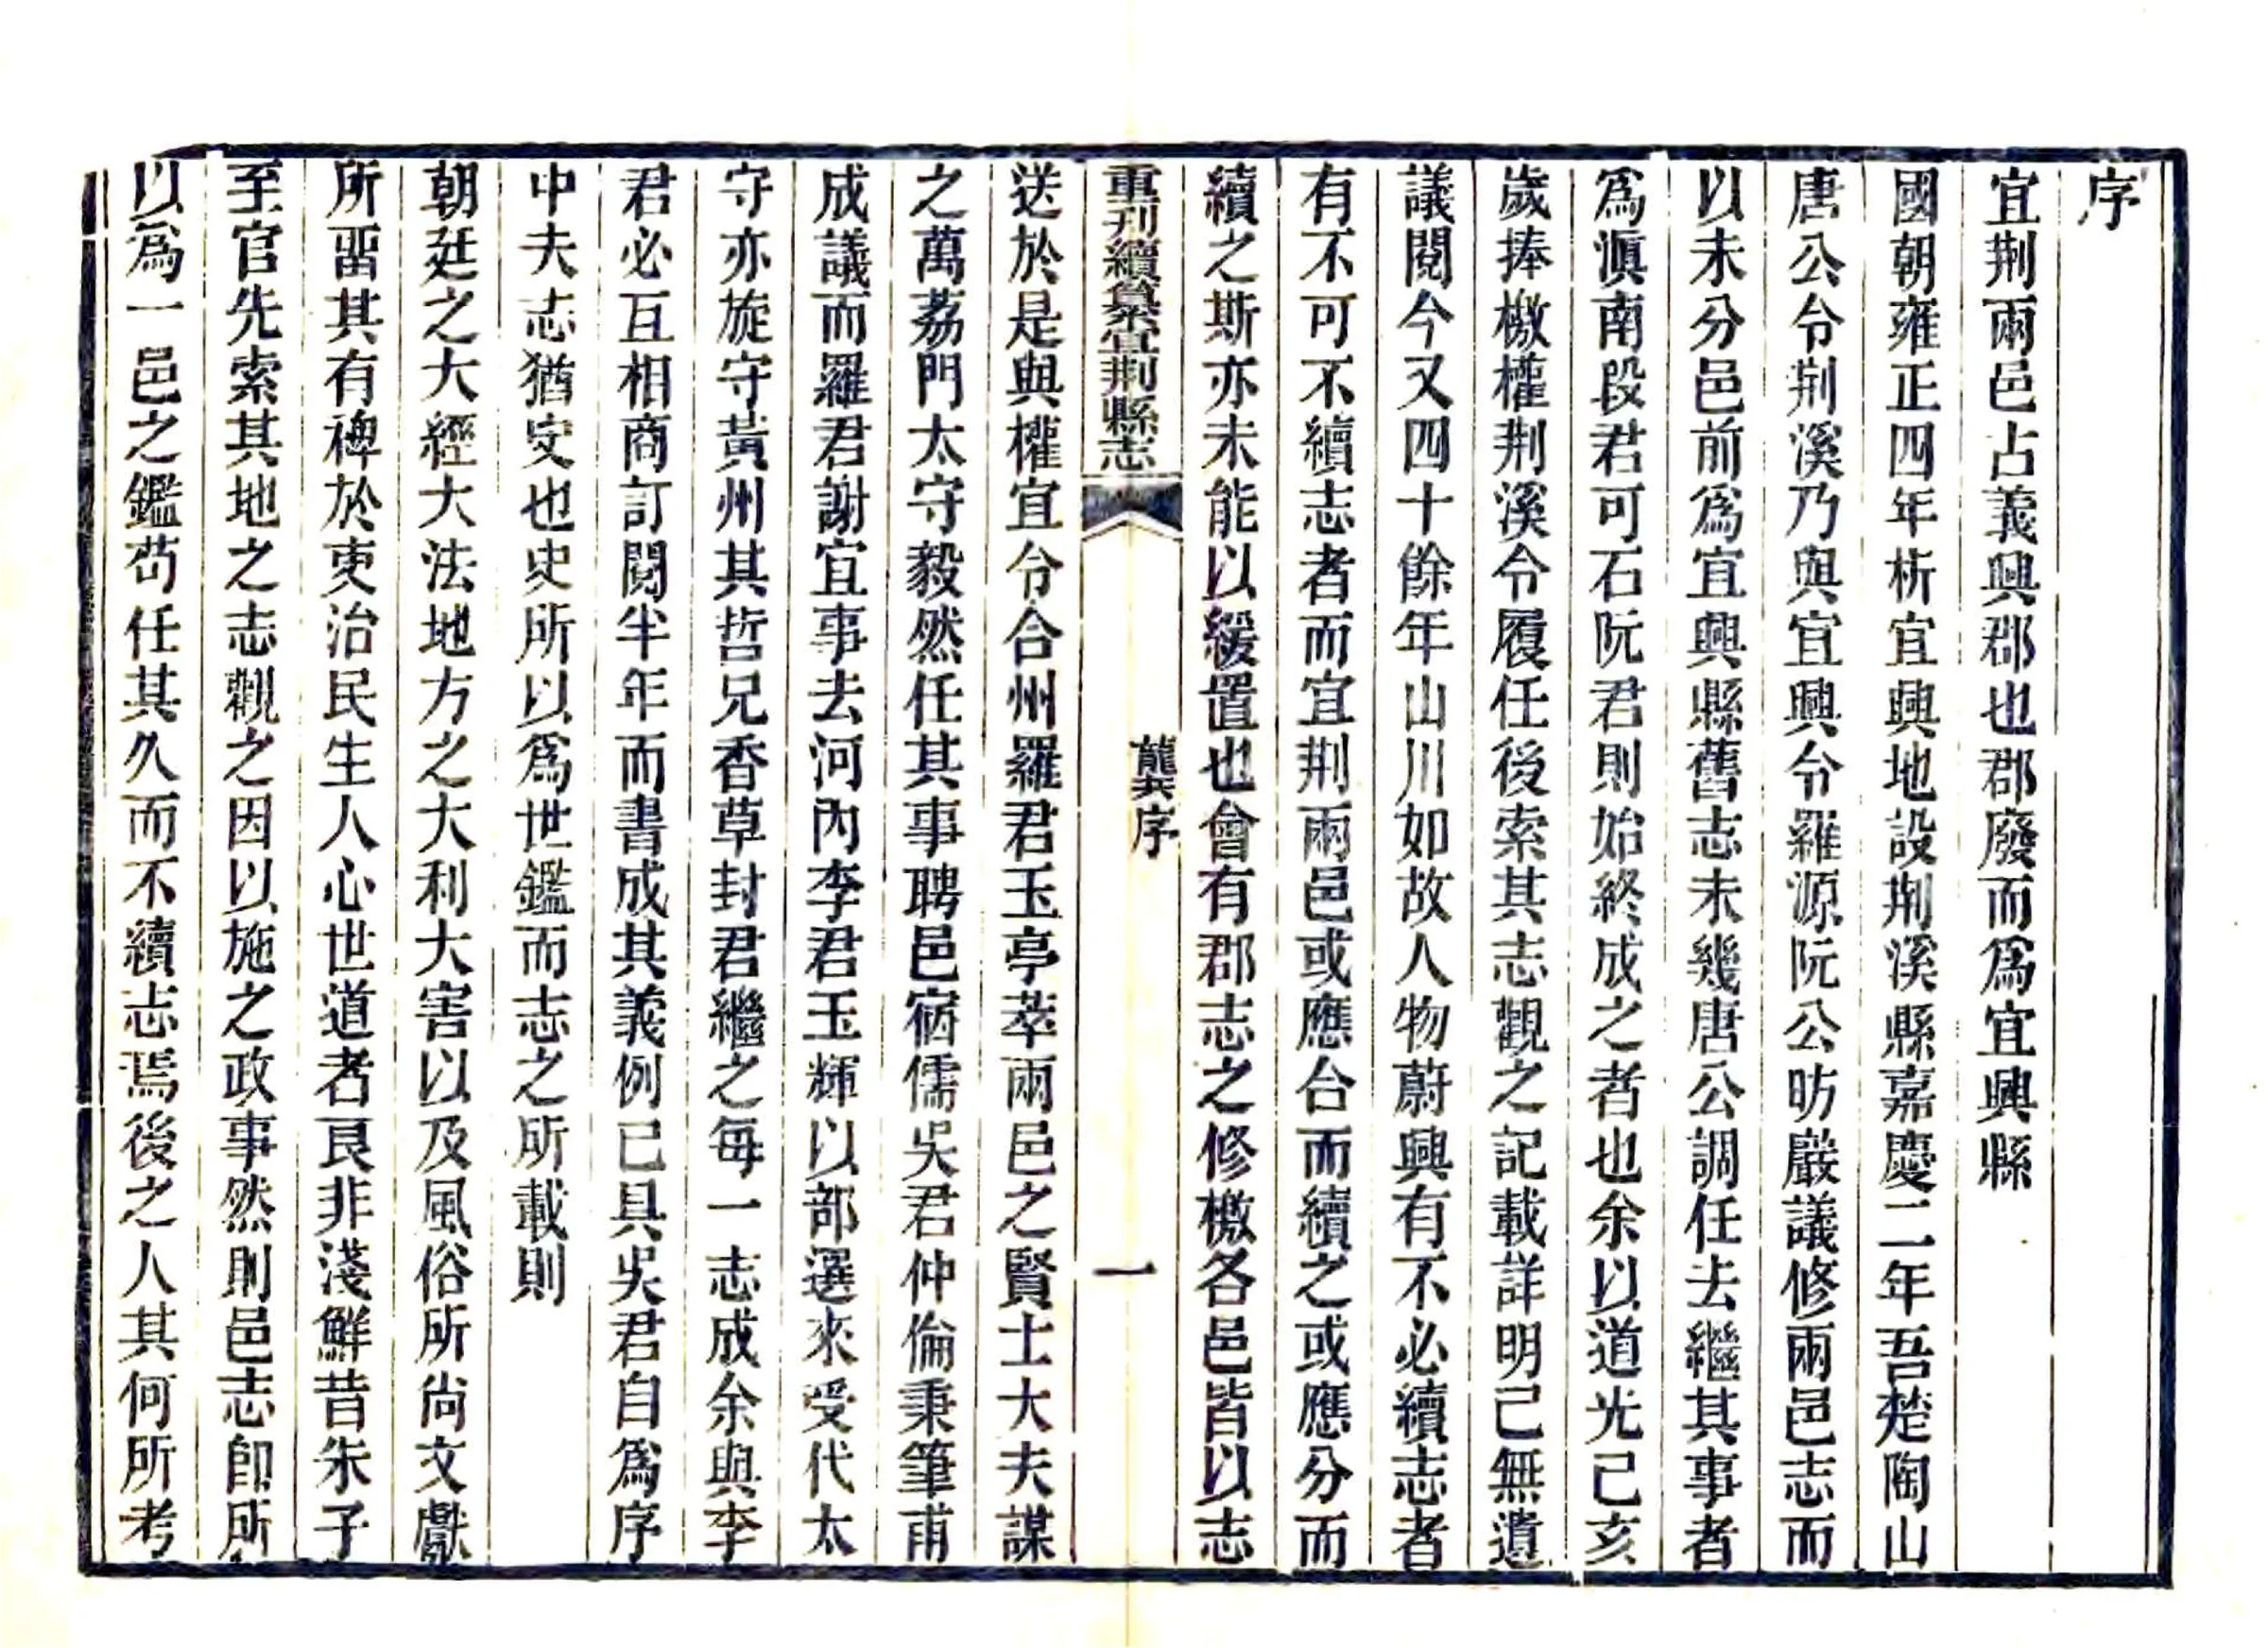 序
宜荆兩邑占義興郡也郡廢而爲宜興縣
國朝雍正四年析宜興地設荆溪縣嘉慶二年吾楚陶山
唐公令荆溪乃與宜興令羅源阮公昉嚴議修兩邑志而
以未分邑前爲宜興縣舊志未幾唐公調任去繼其事者
爲滇南段君可石阮君則始終成之者也余以道光己亥
歲捧檄權荆溪令履任後索其志觀之記載詳明已無遺
議閱今又四十餘年山川如故人物蔚興有不必續志者
有不可不續志者而宜荆兩邑或應合而續之或應分而
續之斯亦未能以緩置也會有郡志之修檄各邑皆以志
重刊續纂宜荆縣志
龔序
一
送於是與權宜令合州羅君玉亭萃兩邑之賢士大夫謀
之萬荔門太守毅然任其事聘邑宿儒吳君仲倫秉筆甫
成議而羅君謝宜事去河內李君玉輝以部選來受代太
守亦旋守黃州其哲兄香草封君繼之每一志成余與李
君必互相商訂閱半年而書成其義例已具吳君自爲序
中夫志猶史也史所以爲世鑑而志之所載則
朝廷之大經大法地方之大利大害以及風俗所尚文獻
所畱其有裨於吏治民生人心世道者良非淺鮮昔朱子
至官先索其地之志觀之因以施之政事然則邑志卽所
以爲一邑之鑑苟任其久而不續志焉後之人其何所考